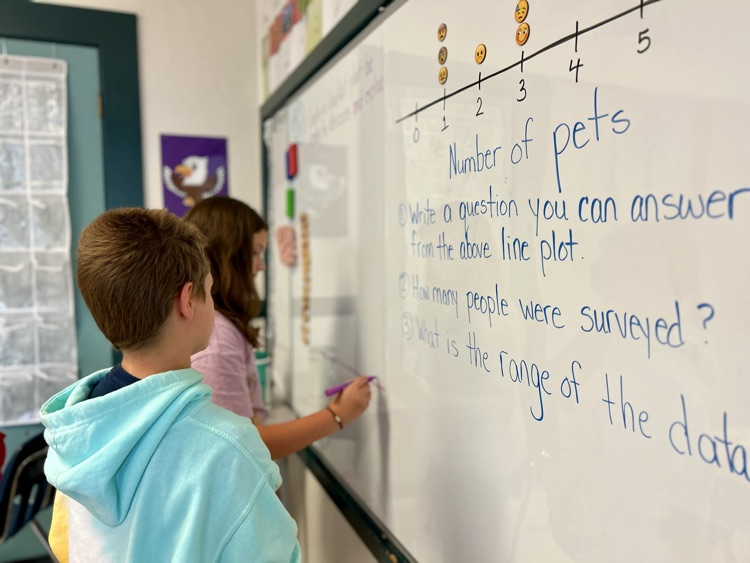 0 1 2 3 4 5
Number of pets
① Write a question you can answer
from the above line plot.
② How many people were surveyed?
③ What is the range of the data